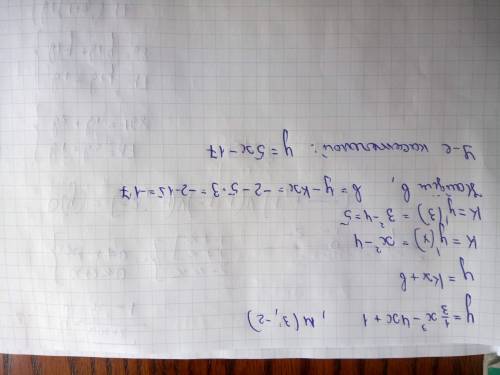 y = 1/3 x³ - 4x + 1 , M(3; -2)
y = kx + b
K = y'(x) = x² - 4
K = y'(3) = 3² - 4 = 5
Найдём b, b = y - kx = -2 - 5·3 = -2-15=-17
У-е касательной: y = 5x - 17